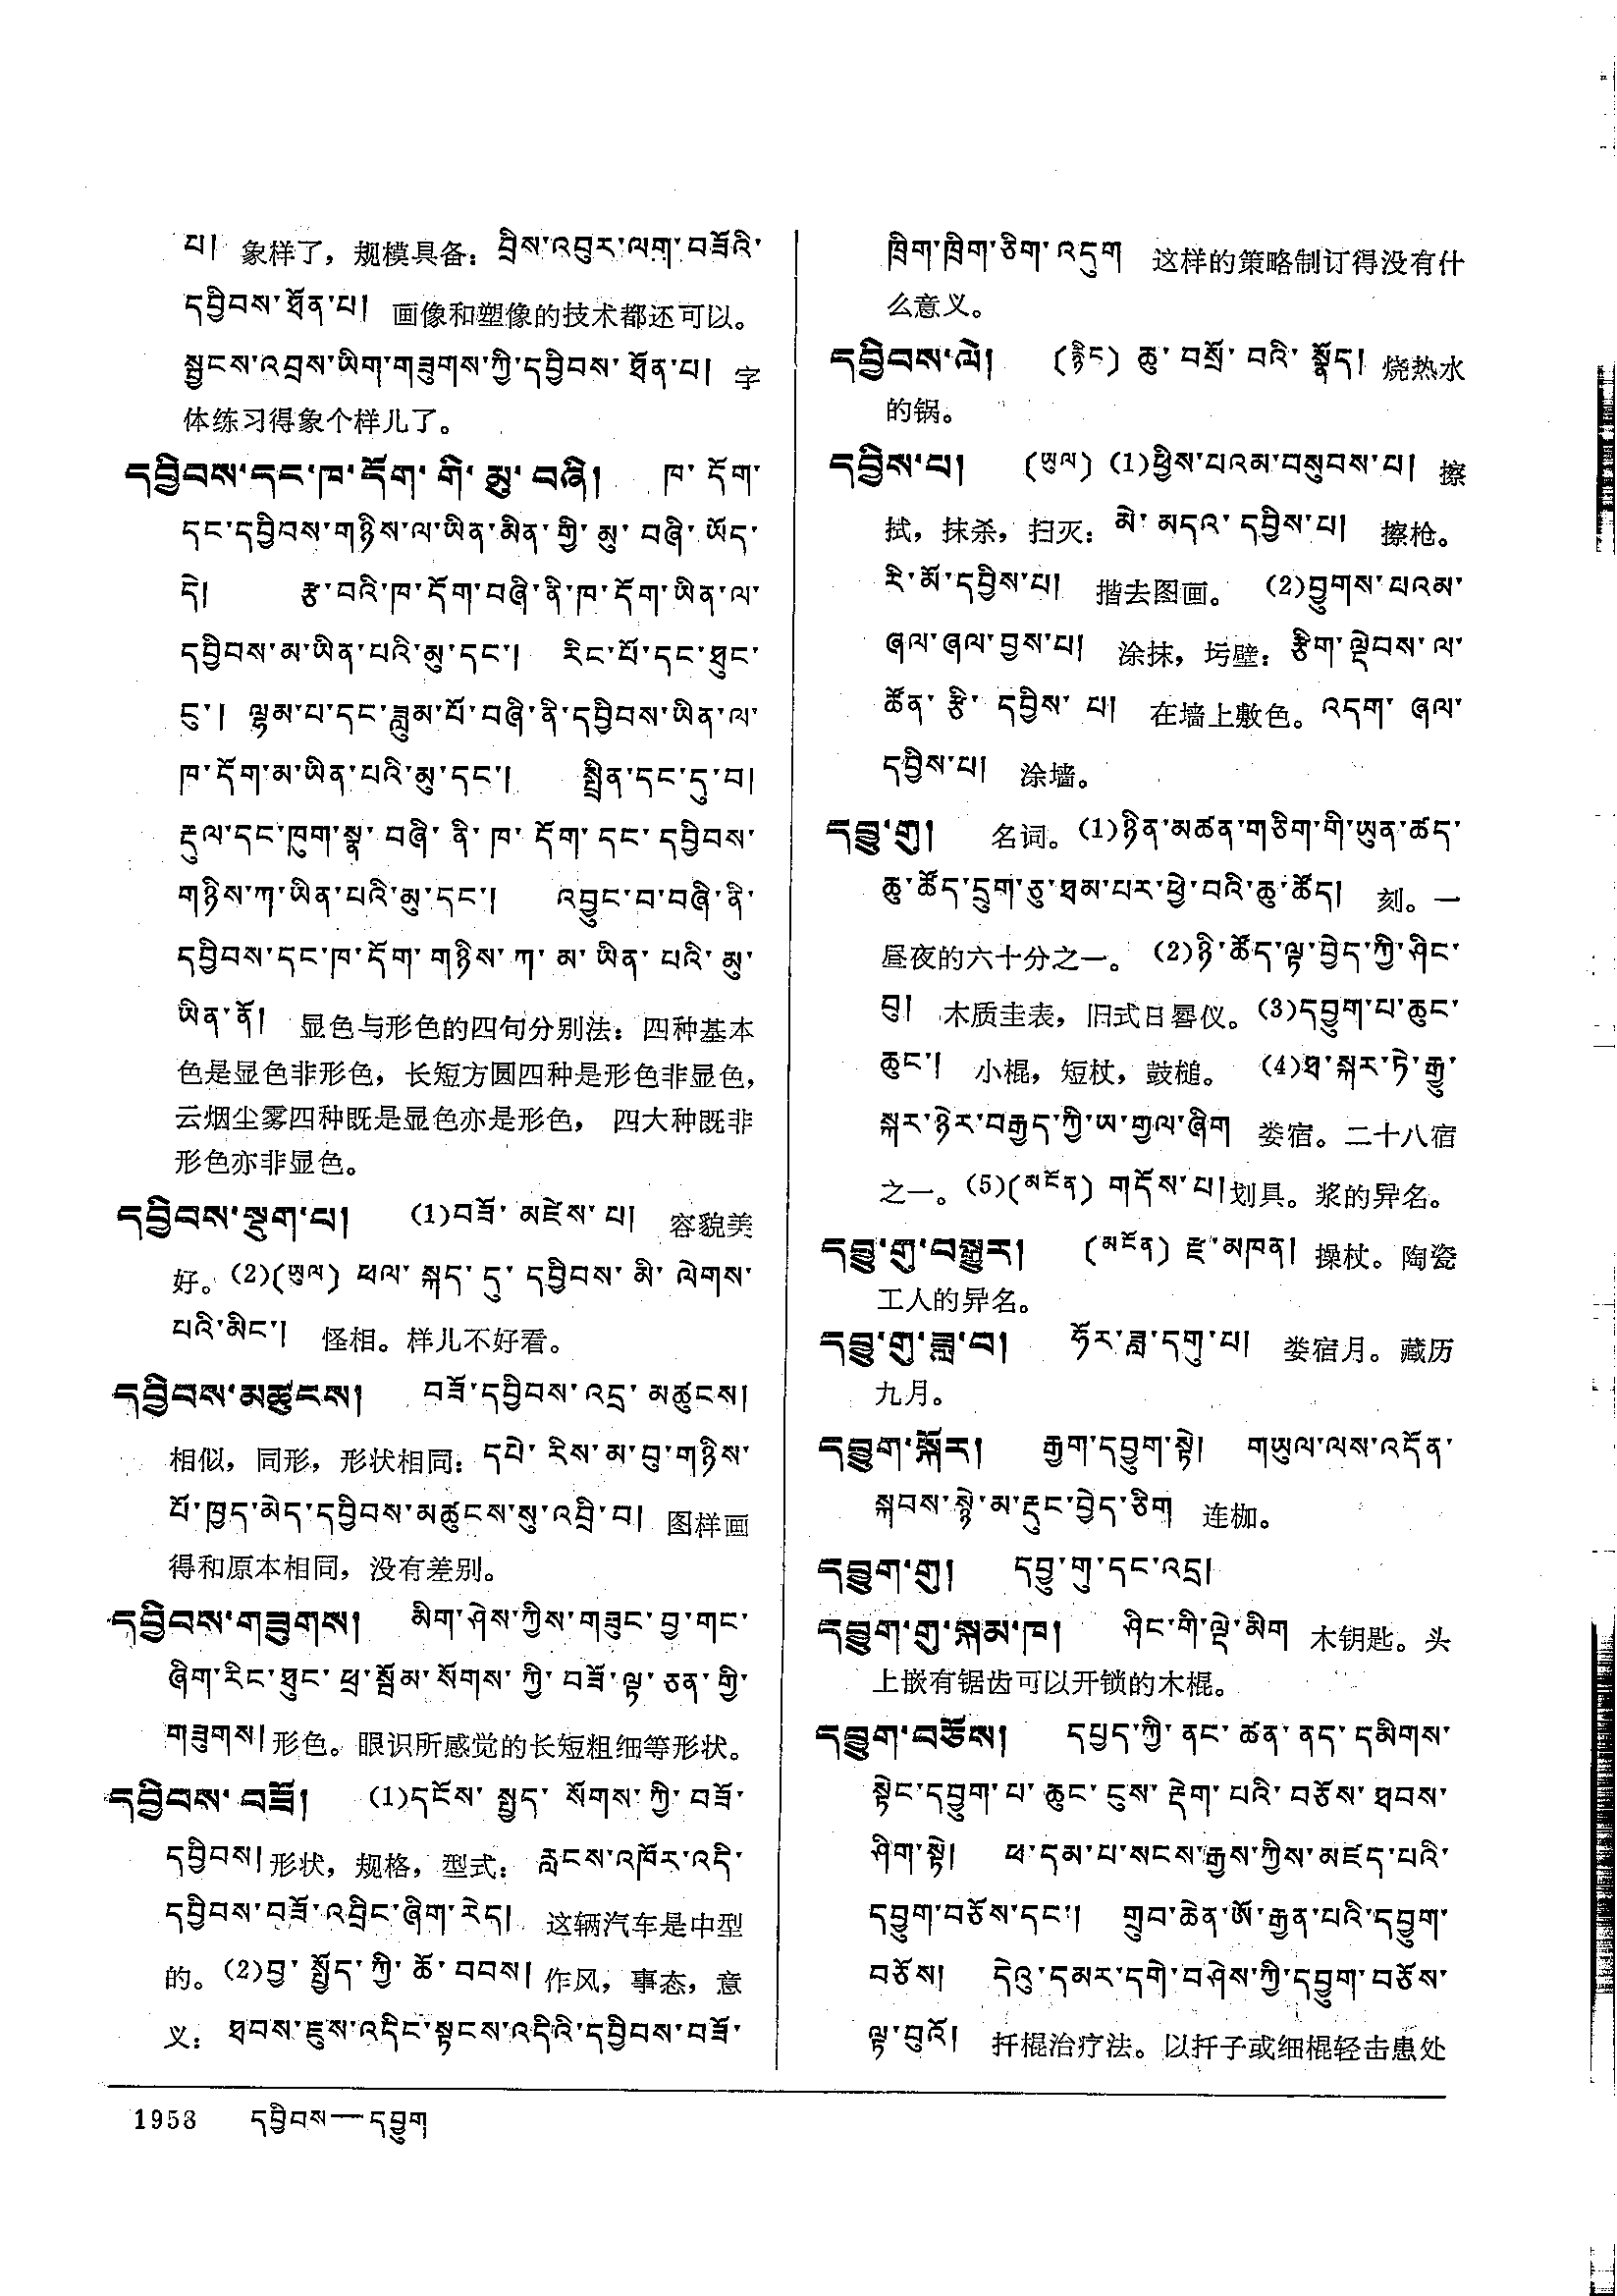 པ། 象样了，规模具备：བྲིས་འབུར་ལག་བཟོའི་
དབྱིབས་ཐོན་པ། 画像和塑像的技术都还可以。
སྦྱངས་འབྲས་ཡིག་གཟུགས་ཀྱི་དབྱིབས་ཐོན་པ། 字
体练习得象个样儿了。
དབྱིབས་དང་ཁ་དོག་གི་མུ་བཞི། ཁ་དོག་
དང་དབྱིབས་གཉིས་ལ་ཡིན་མིན་གྱི་མུ་བཞི་ཡོད་
དེ། རྩ་བའི་ཁ་དོག་བཞི་ནི་ཁ་དོག་ཡིན་ལ་
དབྱིབས་མ་ཡིན་པའི་མུ་དང་། རིང་པོ་དང་ཐུང་
ངུ་། ལྷམ་པ་དང་ཟླུམ་པོ་བཞི་ནི་དབྱིབས་ཡིན་ལ་
ཁ་དོག་མ་ཡིན་པའི་མུ་དང་། སྤྲིན་དང་དུ་བ།
རྡུལ་དང་ཁུག་སྣ་བཞི་ནི་ཁ་དོག་དང་དབྱིབས་
གཉིས་ཀ་ཡིན་པའི་མུ་དང་། འབྱུང་བ་བཞི་ནི་
དབྱིབས་དང་ཁ་དོག་གཉིས་ཀ་མ་ཡིན་པའི་མུ་
ཡིན་ནོ། 显色与形色的四句分别法：四种基本
色是显色非形色，长短方圆四种是形色非显色，
云烟尘雾四种既是显色亦是形色，四大种既非
形色亦非显色。
དབྱིབས་སྡུག་པ། (1)བཟོ་མཛེས་པ། 容貌美
好。(2)(ཡུལ) ཕལ་སྐད་དུ་དབྱིབས་མི་ལེགས་
པའི་མིང་། 怪相。样儿不好看。
དབྱིབས་མཚུངས། བཟོ་དབྱིབས་འདྲ་མཚུངས།
相似，同形，形状相同：དཔེ་རིས་མ་བུ་གཉིས་
པོ་ཁྱད་མེད་དབྱིབས་མཚུངས་སུ་འབྲི་བ། 图样画
得和原本相同，没有差别。
དབྱིབས་གཟུགས། མིག་ཤེས་ཀྱིས་གཟུང་བྱ་གང་
ཞིག་རིང་ཐུང་ཕྲ་སྦོམ་སོགས་ཀྱི་བཟོ་ལྟ་ཅན་གྱི་
གཟུགས། 形色。眼识所感觉的长短粗细等形状。
དབྱིབས་བཟོ། (1)དངོས་སྤྱད་སོགས་ཀྱི་བཟོ་
དབྱིབས། 形状，规格，型式：རླངས་འཁོར་འདི་
དབྱིབས་བཟོ་འབྲིང་ཞིག་རེད། 这辆汽车是中型
的。(2)བྱ་སྤྱོད་ཀྱི་ཆོ་བབས། 作风，事态，意
义：ཐབས་ཇུས་འདིང་སྟངས་འདིའི་དབྱིབས་བཟོ་
ཁྲིག་ཁྲིག་ཅིག་འདུག 这样的策略制订得没有什
么意义。
དབྱིབས་ལེ། (རྙིང) ཆུ་བསྲོ་བའི་སྣོད། 烧热水
的锅。
དབྱིས་པ། (ཡུལ) (1)ཕྱིས་པའམ་བསུབས་པ། 擦
拭，抹杀，扫灭：མེ་མདའ་དབྱིས་པ། 擦枪。
རི་མོ་དབྱིས་པ། 揩去图画。 (2)བྱུགས་པའམ་
ཞལ་ཞལ་བྱས་པ། 涂抹，圬壁：རྩིག་ལྡེབས་ལ་
ཚོན་རྩི་དབྱིས་པ། 在墙上敷色。འདག་ཞལ་
དབྱིས་པ། 涂墙。
དབྱུ་གུ། 名词。(1)ཉིན་མཚན་གཅིག་གི་ཡུན་ཚད་
ཆུ་ཚོད་དྲུག་ཅུ་ཐམ་པར་ཕྱེ་བའི་ཆུ་ཚོད། 刻。一
昼夜的六十分之一。(2)ཉི་ཚོད་ལྟ་བྱེད་ཀྱི་ཤིང་
བུ། 木质圭表，旧式日晷仪。(3)དབྱུག་པ་ཆུང་
ཆུང་། 小棍，短杖，鼓槌。 (4)ཐ་སྐར་ཏེ་རྒྱུ་
སྐར་ཉེར་བརྒྱད་ཀྱི་ཡ་གྱལ་ཞིག 娄宿。二十八宿
之一。(5)(མངོན) གདོས་པ། 划具。浆的异名。
དབྱུ་གུ་བསྒྱུར། (མངོན) རྫ་མཁན། 操杖。陶瓷
工人的异名。
དབྱུ་གུ་ཟླ་བ། ཧོར་ཟླ་དགུ་པ། 娄宿月。藏历
九月。
དབྱུག་སྐོར། རྒྱག་དབྱུག་སྟེ། གཡུལ་ལས་འདོན་
སྐབས་སྙེ་མ་རྡུང་བྱེད་ཅིག 连枷。
དབྱུག་གུ། དབྱུ་གུ་དང་འདྲ།
དབྱུག་གུ་སྐམ་ཁ། ཤིང་གི་ལྡེ་མིག 木钥匙。头
上嵌有锯齿可以开锁的木棍。
དབྱུག་བཅོས། དཔྱད་ཀྱི་ནང་ཚན་ནད་དམིགས་
སྟེང་དབྱུག་པ་ཆུང་ངུས་རྡེག་པའི་བཅོས་ཐབས་
ཤིག་སྟེ། ཕ་དམ་པ་སངས་རྒྱས་ཀྱིས་མཛད་པའི་
དབྱུག་བཅོས་དང་། གྲུབ་ཆེན་ཨོ་རྒྱན་པའི་དབྱུག་
བཅོས། དེའུ་དམར་དགེ་བཤེས་ཀྱི་དབྱུག་བཅོས་
ལྟ་བུའོ། 扦棍治疗法。以扦子或细棍轻击患处
1953 དབྱིབས—དབྱུག